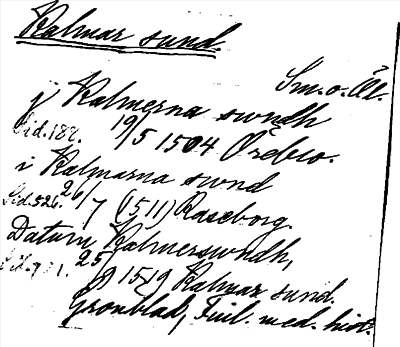 Kalmar sund.
Sm. o. Öl.
j Kalmerna swndh
Sid. 182. 19/5 1504 Örebro.
i Kalmarna swnd
Sid. 526. 26/7 (1511) Raseborg.
Datum Kalmerswndh,
25/ 1519 Kalmar sund.
Grönblad, Finl. med. hist.